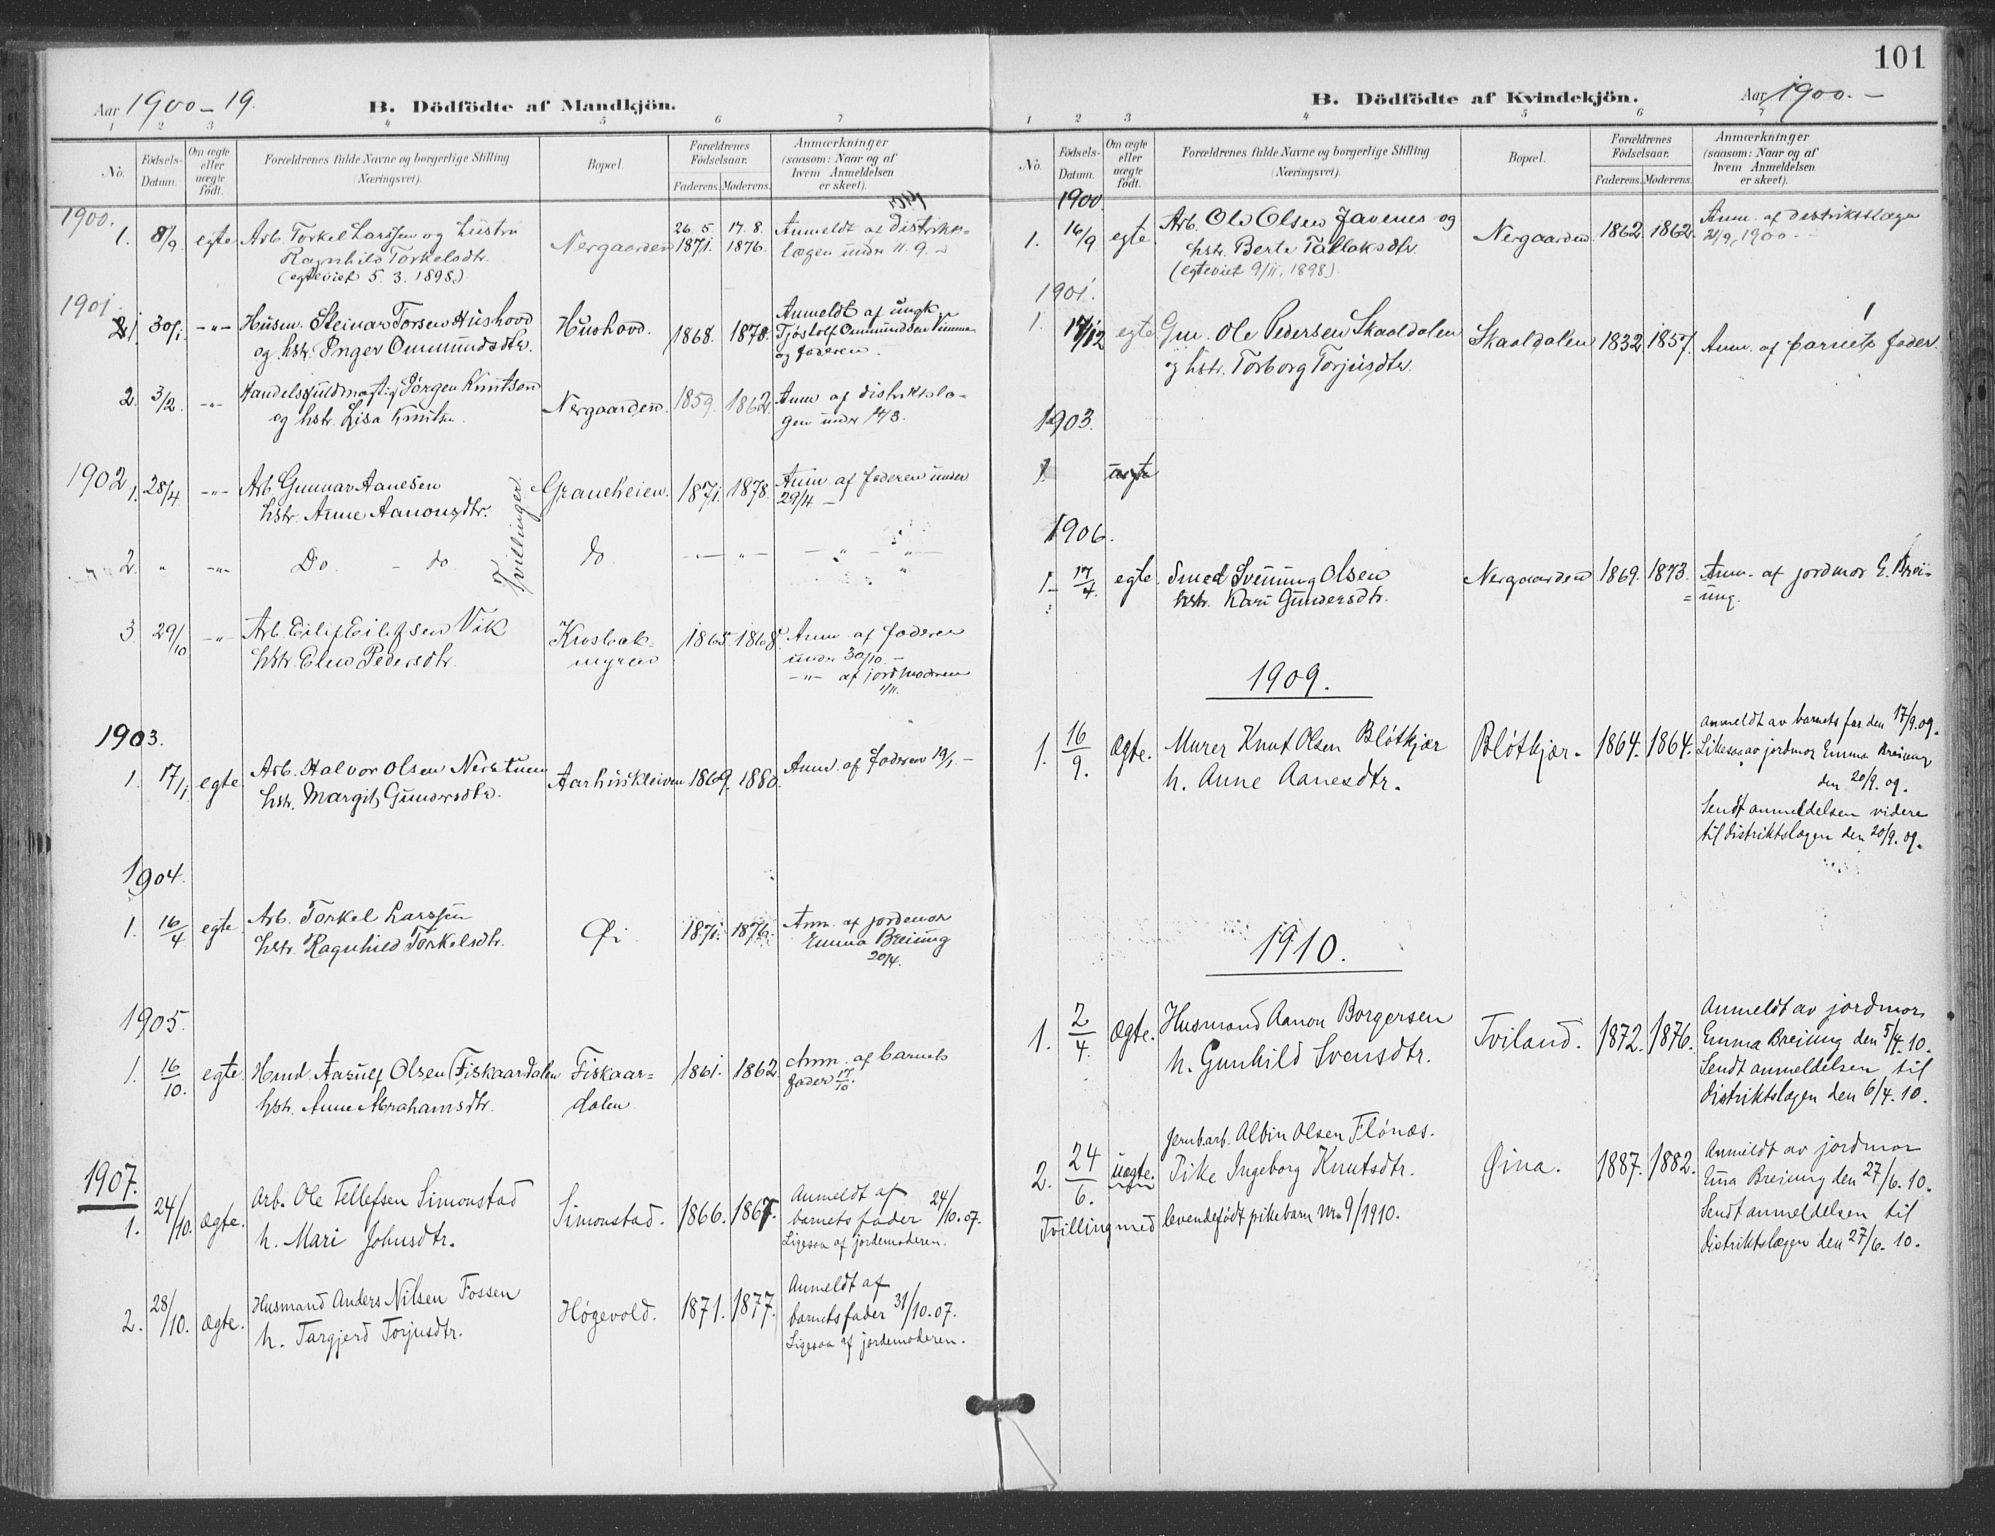 Aar 1900 – 19.
B. Dödfödte af Mandkjön.
1 2 3 4 5 6 7
No.
Födsels-Datum.
Om ægte eller uægte født.
Forældrenes fulde Navne og borgerlige Stilling (Næringsvei).
Bopæl.
Forældrenes Födselsaar.
Faderens. Moderens.
Anmærkninger (saasom: Naar og af hvem Anmeldelsen er skeet).
1900.
1. 8/9 egte Arb. Torkel Larssen og hustru Nergaarden 26.5. 1871. 17.8. 1876. Anmeldt af distrikts-
Ragnhild Torkelsdtr. lægen under 11.9.
(egteviet 5. 3. 1898)
1901.
1. 30/1 -"- Husm. Steinar Torsen Hushovd Hushovd. 1868. 1878. Anmeldt af ungk.
og hstr. Inger Ommundsdtr. Tjøstolf Ommundsen
og faderen.
2. 3/2 -"- Handelsfuldmægtig Jörgen Knutsen Nergaarden 1859. 1862. Anm. af distriktslæ-
og hstr. Lisa Knutsen. gen under
1902
1. 28/4 -"- Arb. Gunnar Aanesen Graneheien. 1871. 1878. Anm. af faderen under
hstr. Anne Aanonsdtr. 29/4 –
Tvillinger
2. " -"- Do. - do. do - " -
3. 29/10 -"- Arb. Eilif Eilifsen Vik Krosbak- 1865. 1868. Anm. af faderen
hstr. Elen Pedersdtr. myren under 30/10. –
-"- af jordmoderen
1/11.
1903.
1. 17/1 egte. Arb. Halvor Olsen Nerstuen Aarhuskleiven 1869. 1880. Anm. af faderen 19/1. –
hstr. Margit Gundersdtr.
1904.
1. 16/4 egte Arb. Torkel Larssen Øi. 1871. 1876. Anm. af jordemor
hstr. Ragnhild Torkelsdtr. Emma Breiung
20/4.
1905.
1. 16/10. egte. Hmd. Aasulf Olsen (Fiskaardalen Fiskaar- 1861. 1862. Anm. af barnets
hstr. Anne Abrahamsdtr. dalen. fader 17/10.
1907.
1. 24/10. ægte. Arb. Ole Tellefsen Simonstad Simonstad. 1866. 1867. Anmeldt af
h. Mari Johnsdtr. barnets fader 24/10. 07.
Ligesaa af jordemoderen.
2. 28/10. ægte. Husmand Anders Nilsen Fossen Høgevold. 1871. 1877. Anmeldt af
h. Targjerd Torjusdtr. barnets fader 31/10. 07.
Ligesaa af jordemoderen.
101
B. Dödfödte af Kvindekjön.
Aar 1900. –
1 2 3 4 5 6 7
No.
Födsels-Datum.
Om ægte eller uægte födt.
Forældrenes fulde Navne og borgerlige Stilling (Næringsvei).
Bopæl.
Forældrenes Födselsaar.
Faderens. Moderens.
Anmærkninger (saasom: Naar og af hvem Anmeldelsen er skeet).
1900.
1. 16/9 egte. Arb. Ole Olsen Javenes og Nergaarden. 1862. 1862. Anm. af destriktslægen
hstr. Berte Tallaksdtr. 1900 –
(egteviet 9/11. 1898)
1901.
1. 17/12 egte Gm. Ole Pedersen Skaaldalen Skaaldalen 1832. 1857. Anm. af barnets fader.
og hstr. Torborg Torjusdtr.
1903.
1. uegte
1906.
1. 17/4. egte. Smed Svenung Olsen Nergaarden 1869. 1873. Anm. af jordmor E. Brei-
hstr. Kari Gundersdtr. ung.
1909.
1. 16/9. Ægte. Murer Knut Olsen Bløtkjær Bløtkjær. 1864. 1864. Anmeldt av barnets far den 17/9. 09.
h. Anne Aanesdtr. Likesaa av jordmor Emma Breiung
den 20/9. 09.
Sendt anmeldelsen videre
til distriktslægen den 20/9. 09.
1910.
1. 2/4. Ægte. Husmand Aanon Borgersen Tviland. 1872. 1876. Anmeldt av jordmor
h. Gunhild Svensdtr. Emma Breiung den 5/4. 10.
Sendt anmeldelsen til
distriktslægen den 6/4. 10.
2. 24/6. uægte. Jernb.arb. Albin Olsen Flønæs. Øina. 1887. 1882. Anmeldt av jordmor
Pike Ingeborg Knutsdtr. Emma Breiung den 27/6. 10.
Tvilling med levendefødt pikebarn nr. 9/1910. Sendt anmeldelsen til
distriktslægen den 27/6. 10.